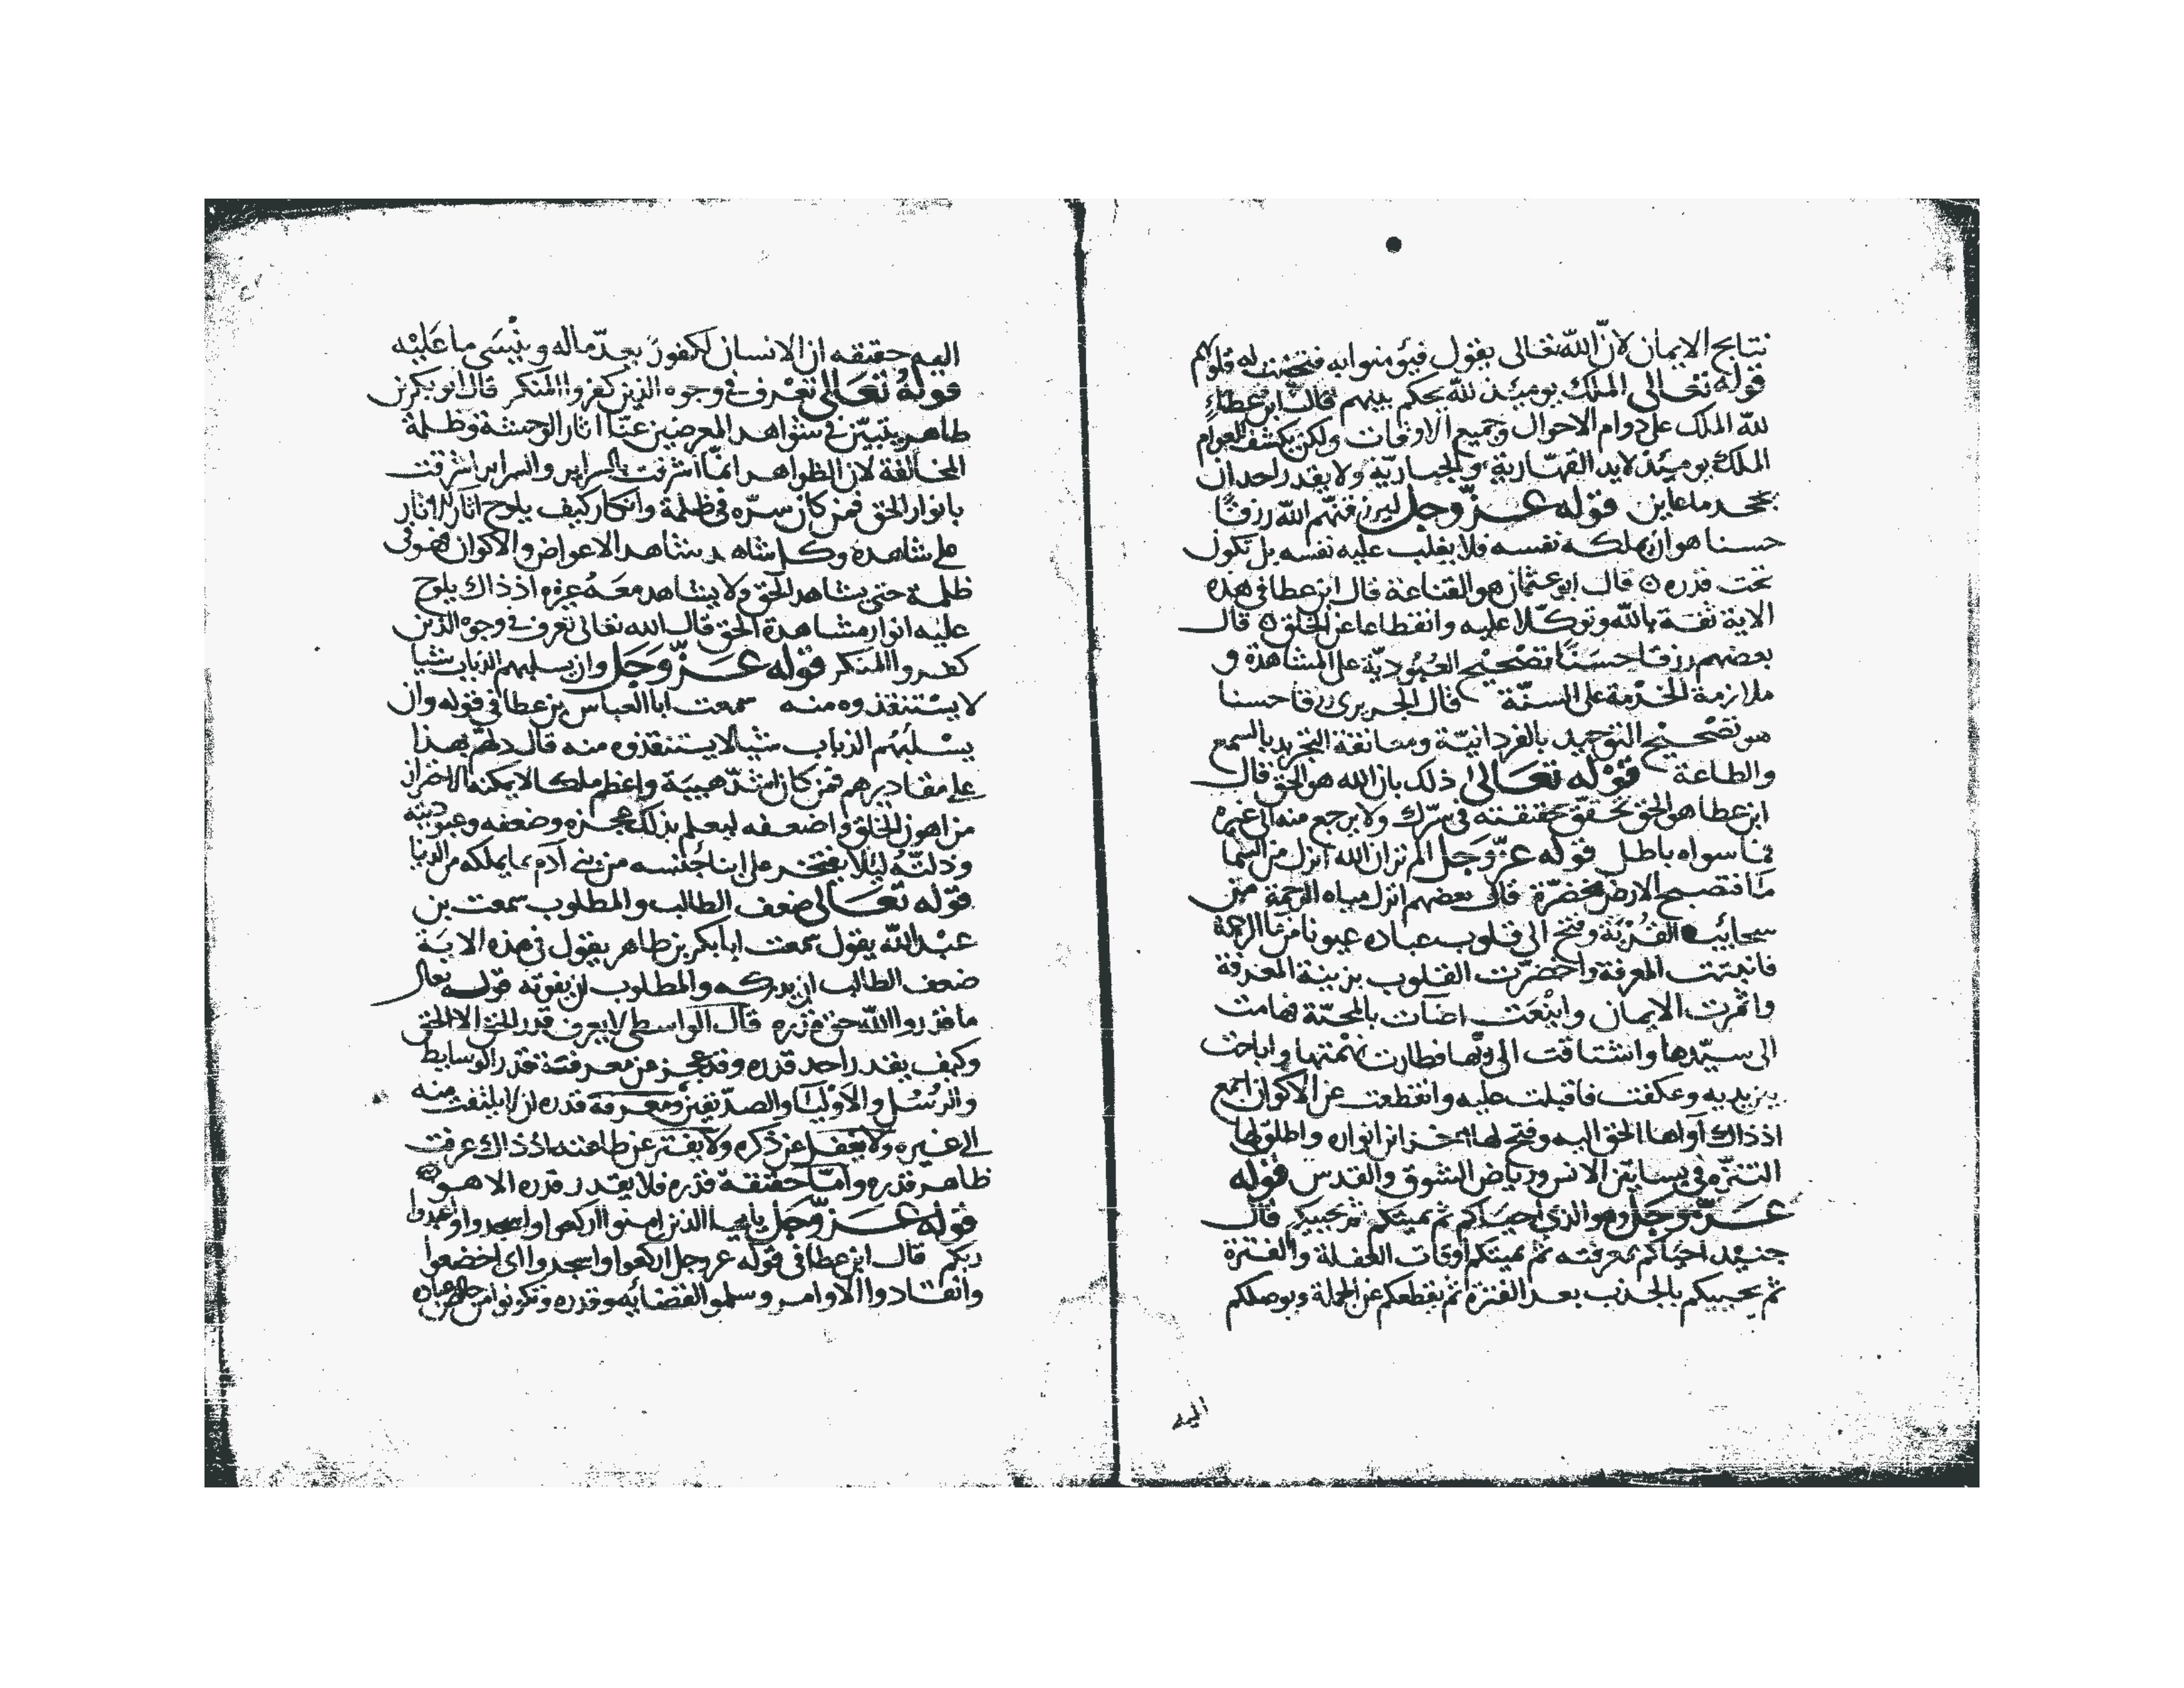 نتايج الايمان لانّ الله تعالى يقول فيؤمنوا به فتخبت له قلوبهم
قوله تعالى الملك يومئذ لله يحكم بينهم قال ابن عطاء
لله الملك على دوام الاحوال وجميع الاوقات ولكن يكشف للعوام
الملك يومئذ لابد القهّارية والجباريّة ولا يقدر احد ان
يجحد ما عاين قوله عزّ وجل ليرزقنّهم الله رزقًا
حسنا هو ان يملكه نفسه فلا يغلب عليه نفسه بل تكون
تحت قدره قال ابو عثمان هو القناعة قال ابن عطا في هذه
الاية ثقة بالله وتوكّلا عليه وانقطاعا عن الخلق قال
بعضهم رزقا حسنًا تصحيح العبُوديّة على المشاهدة و
ملازمة الخدمة على السنّة قال الجريرى رزقا حسنا
هو تصحيح التوحيد بالفردانيّة ومعانقة التجريد بالسمع
والطاعة قوله تعالى ذلك بان الله هو الحق قال
ابن عطا هو الحق تحقّق حقيقته في سرّك ولا يرجع منه الى غيره
فما سواه باطل قوله عزّ وجل الم تر ان الله انزل من السما
مآ فتصبح الارض مخضرّة قال بعضهم انزل مياه الرحمة من
سحائب القُرْبة وفتح الى قلوب عباده عيونا من مآ الرحمة
فانبتت المعرفة واخضرّت القلوب بزينة المعرفة
واثمرت الايمان واينْعَت اضآت بالمحبّة فهامت
الى سيّدها واشتاقت الى ربّها فطارت بهمّتها واناخت
بين يديه وعكفت فاقبلت عليه وانقطعت عن الاكوان اجمع
اذ ذاك آواها الحق اليه وفتح لها خزائن انواره واطلق لها
التنزّه في بساتين الانس ورياض الشوق والقدس قوله
عزّ وجل وهو الذي احياكم ثم يميتكم ثم يحييكم قال
جنيد احياكم بمعرفته ثم يميتكم اوقات الغفلة والفترة
ثم يحييكم بالجذب بعد الفترة ثم يقطعكم عن الجملة ويوصلكم
اليه
اليه حقيقه ان الانسان لكفور يعدّ ماله وينْسَى ما عليْه
قوله تعالى تعرف في وجوه الذين كفروا المنكر قال ابو بكر بن
طاهر يتبيّن في شواهد المعرضين عنّا اثار الوحشة وظلمة
المخالفة لان الظواهر انمّا اشرقت بالسراير والسراير اشرقت
بانوار الحق فمن كان سرّه في ظلمة وانكار كيف يلوح اثار الانار
على شاهده وكل شاهد يشاهد الاعواض والاكوان فهو في
ظلمة حتى يشاهد الحق ولا يشاهد معه غيره اذ ذاك يلوح
عليه انوار مشاهدة الحق قال الله تعالى تعرف في وجوه الذين
كفروا المنكر قوله عزّ وجَل وان يسلبهم الذباب شيا
لا يستنقذوه منه سمعت ابا العباس بن عطا في قوله وان
يسْلبهُم الذباب شيا لا يستنقذوه منه قال دلهم بهذا
على مقاديرهم فمن كان اشدّ هيبَة واعظم ملكا لا يمكنه الاحتراز
من اهون الخلق واضعفه ليعلم بذلك عجزه وضعفه وعبوديته
وذلّتهُ ليلا يفتخر على ابنا جنسه من بني آدم بما يملكه من الدنيا
قوله تعَالى ضعف الطالب والمطلوب سمعت بن
عبْد الله يقول سمعت ابا بكر بن طاهر يقول في هذه الاية
ضعف الطالب ان يدركه والمطلوب ان يفوته قوله تعالى
ما قدروا الله حق قدره قال الواسطى لا يعرف قدر الحق الا الحق
وكيف يقدر احد قدره وقد عجز عن معرفة قدر الوسايط
والرُسُل والاوليآ والصدّيقين ومعرفة قدره ان لا يلتفت منه
الى غيره ولا يغفل عن ذكره ولا يفتر عن طاعته اذ ذاك عرفت
ظاهر قدره وامّا حقيقة قدره فلا يقدر قدره الا هو
قوله عزّ وجل يا يها الذين امنوا اركعوا واسجدوا واعبدوا
ربكم قال ابن عطا في قوله عز وجل اركعوا واسجدوا اى اخضعوا
وانقادوا الاوامر وسلموا لقضائه وقدره وتكونوا من خالص عباده